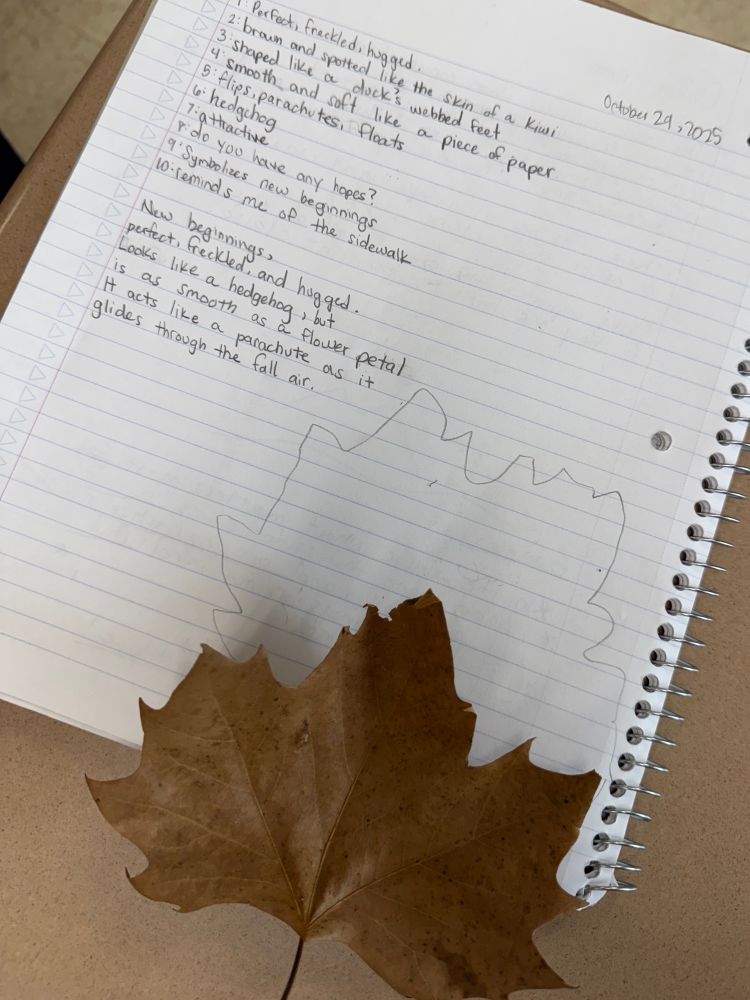 October 29, 2025
1: Perfect, freckled, hugged.
2: brown and spotted like the skin of a kiwi
3: shaped like a duck's webbed feet
4: smooth and soft like a piece of paper
5: flips, parachutes, floats
6: hedgehog
7: attractive
8: do you have any hopes?
9: Symbolizes new beginnings
10: reminds me of the sidewalk
New beginnings,
perfect, freckled, and hugged.
Looks like a hedgehog, but
is as smooth as a flower petal
It acts like a parachute as it
glides through the fall air.